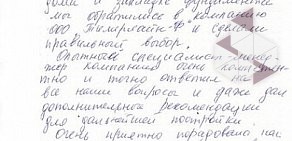 дома и закладке фундамента
мы обратились в компанию
ООО и сделали
правильный выбор.
Опытный специалист-менед-
жер компании очень компетент-
но и точно ответил на
все наши вопросы и даже дал
дополнительные рекомендации
для дальнейшей постройки.
Очень приятно порадовала нас